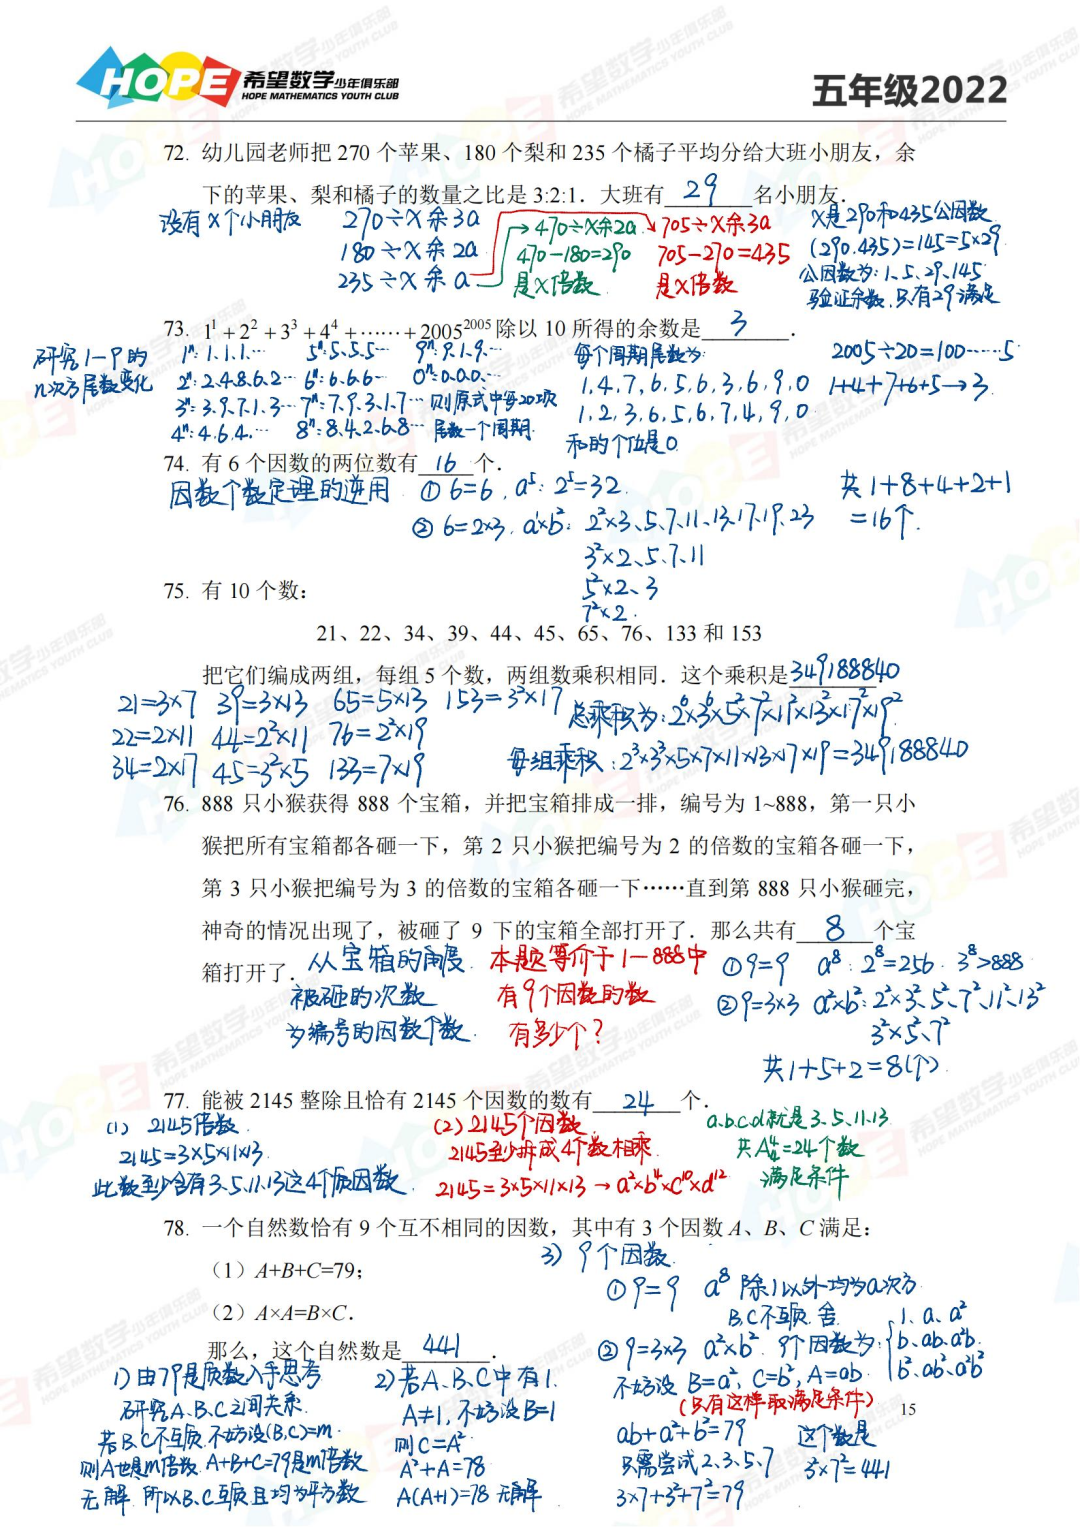 HOPE 希望数学少年俱乐部
HOPE MATHEMATICS YOUTH CLUB
五年级2022
72. 幼儿园老师把 270 个苹果、180 个梨和 235 个橘子平均分给大班小朋友，余
下的苹果、梨和橘子的数量之比是 3:2:1．大班有 29 名小朋友．
设有x个小朋友
270÷x余3a
180÷x余2a
235÷x余a
470÷x余2a
470-180=290
是x倍数
705÷x余3a
705-270=435
是x倍数
x是290和435公因数
(290.435)=145=5×29
公因数为:1、5、29、145
验证余数,只有29满足
73. 1¹+2²+3³+4⁴+……+2005²⁰⁰⁵除以 10 所得的余数是 3 ．
研究1-9的
n次方尾数变化
1ⁿ:1.1.1.… 5ⁿ:5.5.5… 9ⁿ:9.1.9.…
2ⁿ:2.4.8.6.2… 6ⁿ:6.6.6… 0ⁿ:0.0.0.…
3ⁿ:3.9.7.1.3… 7ⁿ:7.9.3.1.7… 则原式中每20项
4ⁿ:4.6.4.… 8ⁿ:8.4.2.6.8… 尾数一个周期
每个周期尾数为:
1.4.7.6.5.6.3.6.9.0
1.2.3.6.5.6.7.4.9.0
和的个位是0
2005÷20=100……5
1+4+7+6+5→3
74. 有 6 个因数的两位数有 16 个．
因数个数定理的逆用 ①6=6 . a⁵: 2⁵=32.
②6=2×3. a¹×b²: 2²×3、5、7、11、13、17、19、23
3²×2、5、7、11
5²×2、3
7²×2.
共1+8+4+2+1
=16个.
75. 有 10 个数：
21、22、34、39、44、45、65、76、133 和 153
把它们编成两组，每组 5 个数，两组数乘积相同．这个乘积是 349188840
21=3×7 39=3×13 65=5×13 153=3²×17
22=2×11 44=2²×11 76=2²×19
34=2×17 45=3²×5 133=7×19
总乘积为:2⁶×3⁶×5²×7²×11²×13²×17²×19²
每组乘积:2³×3³×5×7×11×13×17×19=349188840
76. 888 只小猴获得 888 个宝箱，并把宝箱排成一排，编号为 1~888，第一只小
猴把所有宝箱都各砸一下，第 2 只小猴把编号为 2 的倍数的宝箱各砸一下，
第 3 只小猴把编号为 3 的倍数的宝箱各砸一下……直到第 888 只小猴砸完，
神奇的情况出现了，被砸了 9 下的宝箱全部打开了．那么共有 8 个宝
箱打开了．
从宝箱的角度
被砸的次数
为编号的因数个数.
本题等价于1-888中
有9个因数的数
有多少个?
①9=9 a⁸:2⁸=256. 3⁸>888
②9=3×3 a²×b²:2²×3²、5²、7²、11²、13²
3²×5²、7²
共1+5+2=8(个)
77. 能被 2145 整除且恰有 2145 个因数的数有 24 个．
(1) 2145倍数
2145=3×5×11×13
此数至少含有3.5.11.13这4个质因数.
(2)2145个因数
2145至少拆成4个数相乘
2145=3×5×11×13→a²×b⁴×c¹⁰×d¹²
a.b.c.d就是3.5.11.13.
共A₄⁴=24个数
满足条件
78. 一个自然数恰有 9 个互不相同的因数，其中有 3 个因数 A、B、C 满足：
（1）A+B+C=79；
（2）A×A=B×C．
那么，这个自然数是 441 ．
1)由79是质数入手思考
研究A.B.C之间关系.
若B.C不互质.不妨设(B.C)=m.
则A也是m倍数.A+B+C=79是m倍数
无解.所以B.C互质且均为平方数
2)若A.B.C中有1.
A≠1,不妨设B=1
则C=A²
A²+A=78
A(A+1)=78 无解
3) 9个因数.
①9=9 a⁸ 除1以外均为a次方.
B.C不互质.舍.
②9=3×3 a²×b². 9个因数为:
1. a. a²
b. ab. a²b.
b². ab². a²b²
不妨设B=a², C=b², A=ab.
(只有这样取满足条件)
ab+a²+b²=79
只需尝试2、3、5、7
3×7+3²+7²=79
这个数是
3²×7²=441
15